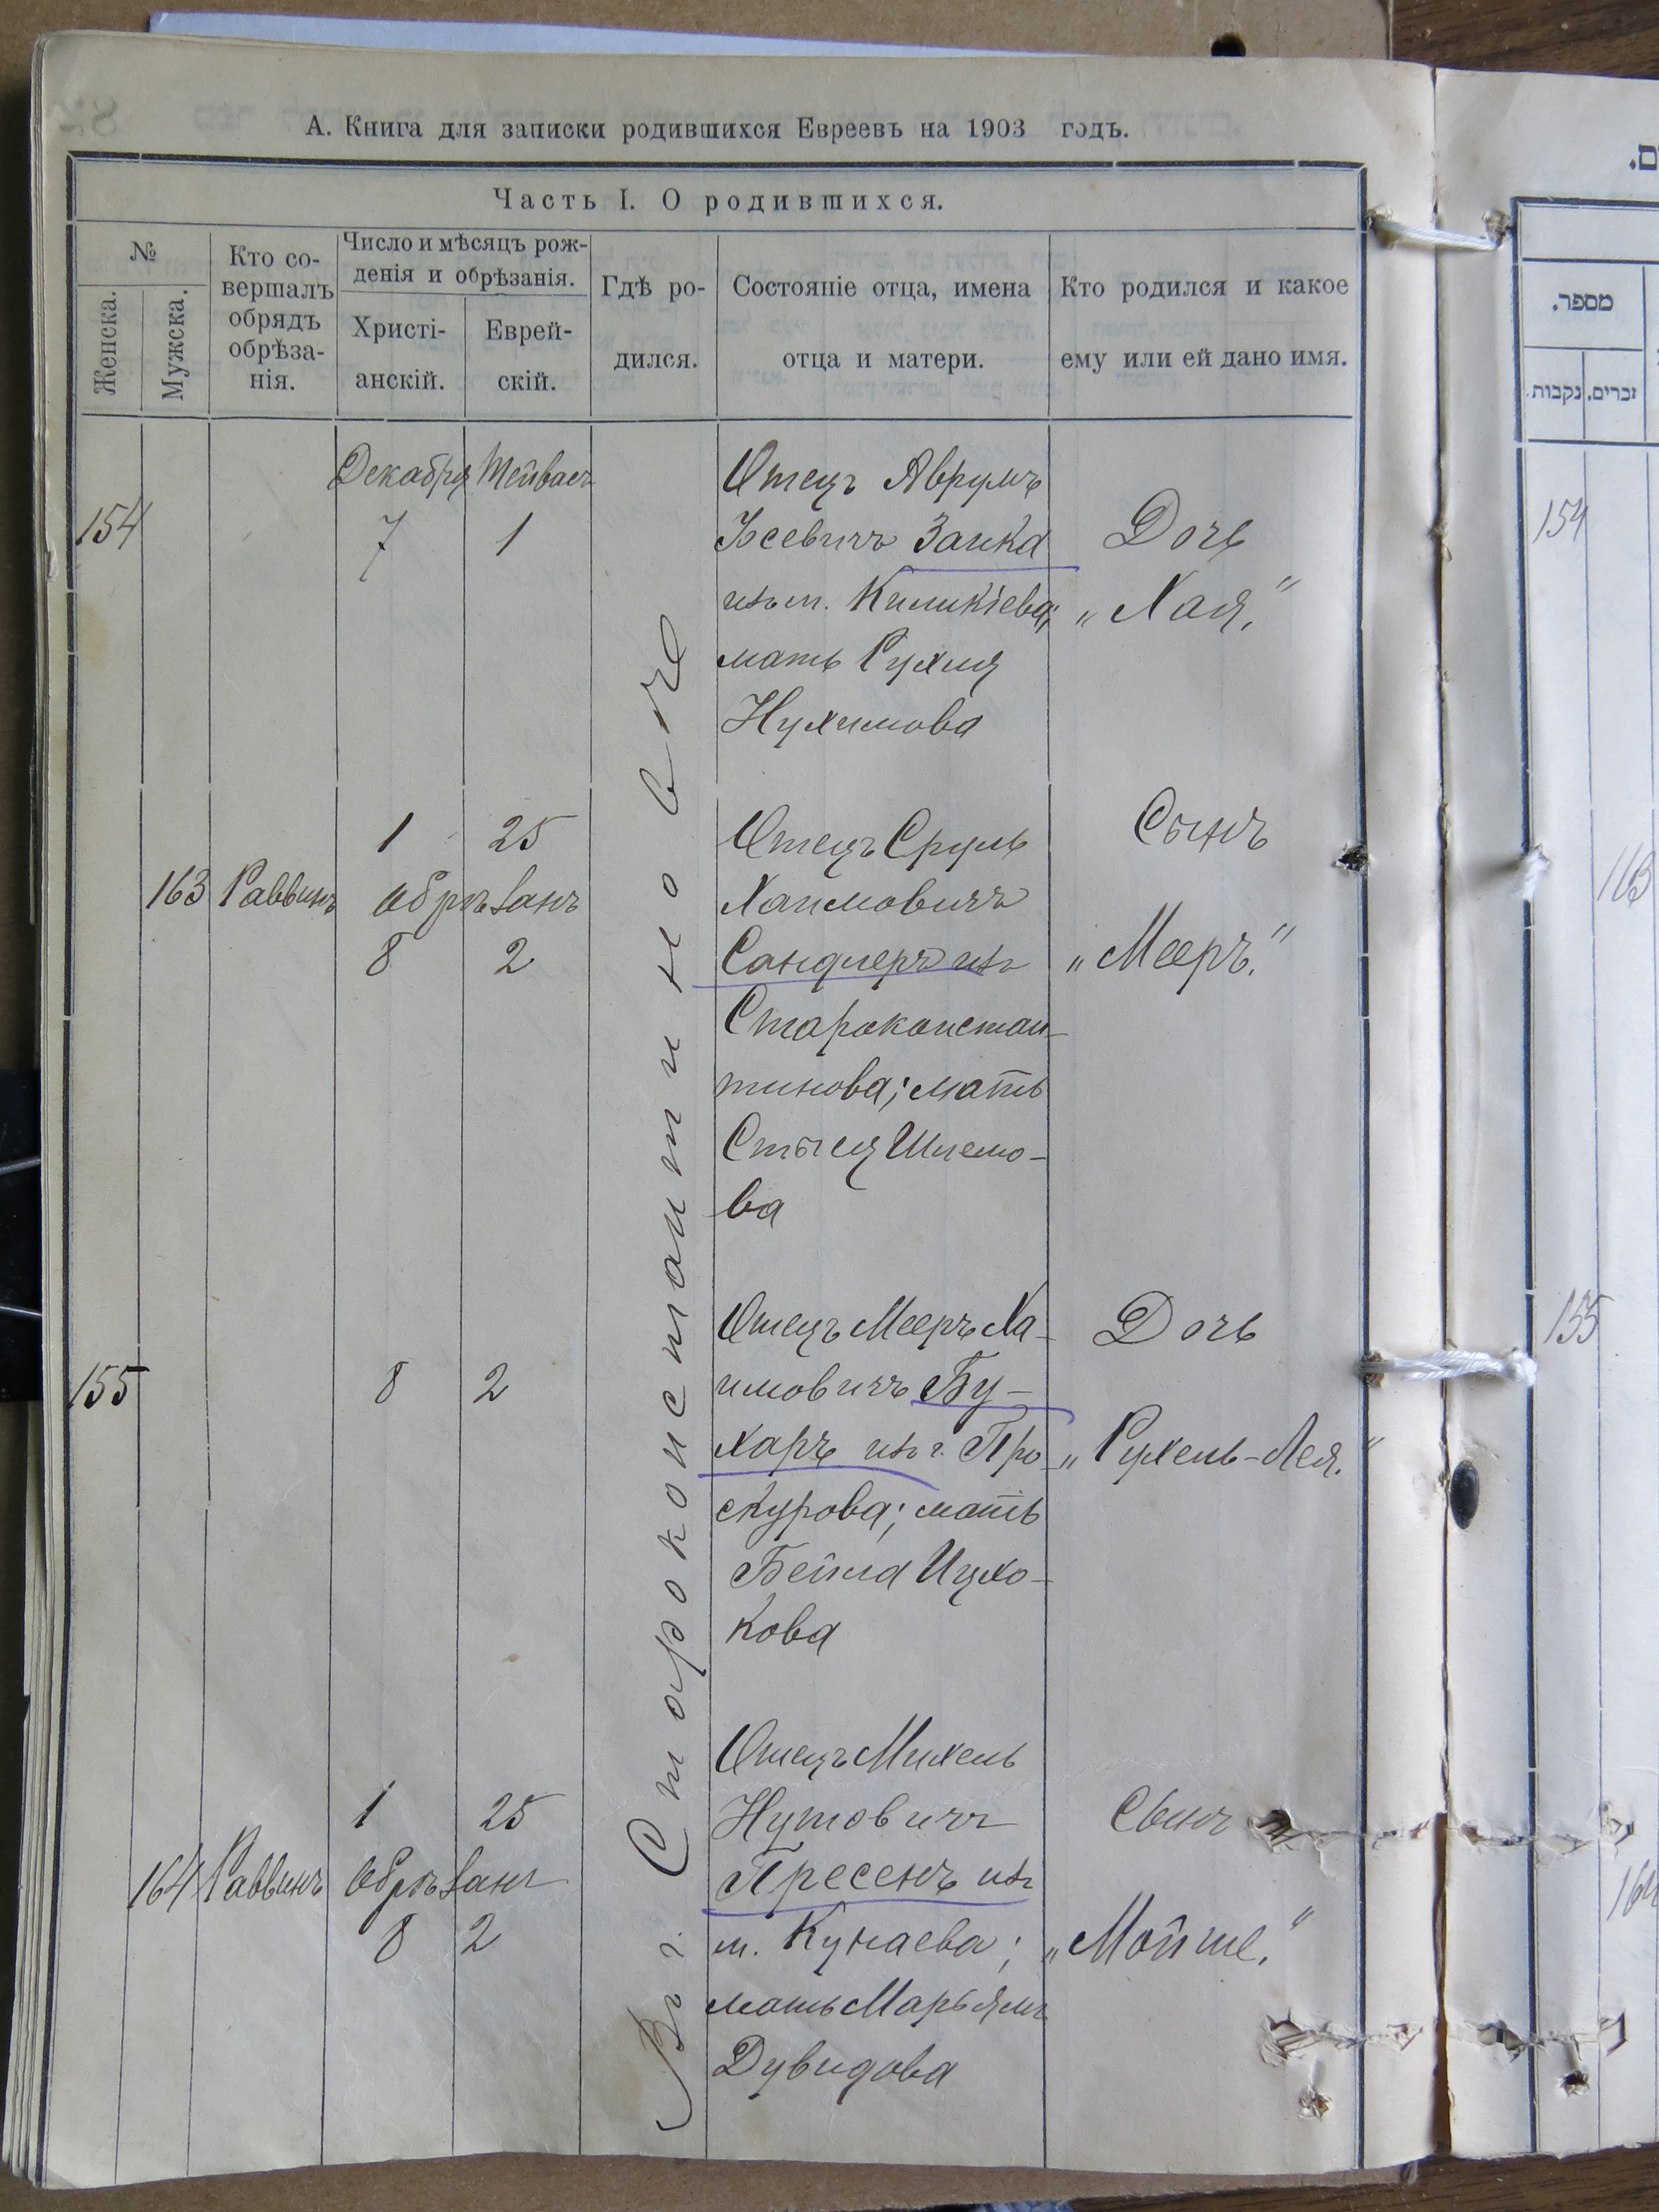 А. Книга для записки родившихся Евреевъ на 1903 годъ.
Часть I. О родившихся.
№
Женска.
Мужска.
Кто со-
вершалъ
обрядъ
обрѣза-
нія.
Число и мѣсяцъ рож-
денія и обрѣзанія.
Христі-
анскій.
Еврей-
скій.
Гдѣ ро-
дился.
Состояніе отца, имена
отца и матери.
Кто родился и какое
ему или ей дано имя.
Въ г. Староконстантиновѣ
Декабря Тейвасъ
154 7 1
Отецъ Аврумъ
Іосевичъ Заика
изъ м. Киликіева;
мать Рухля
Нухимова
Дочь
„Хая."
1 25
163 Раввинъ обрѣзанъ
8 2
Отецъ Сруль
Хаимовичъ
Сандлеръ изъ
Староконстан-
тинова; мать
Стыся Шлемо-
ва
Сынъ
„Мееръ."
155 8 2
Отецъ Мееръ Ха-
имовичъ Бу-
харъ изъ г. Про-
скурова; мать
Бейла Ицко-
кова
Дочь
„Рухель-Лея."
1 25
164 Раввинъ обрѣзанъ
8 2
Отецъ Михель
Нутовичъ
Пресенъ изъ
м. Кунаева;
мать Марьямъ
Дувидова
Сынъ
„Мойше."
מספר.
זכרים. נקבות.
154
163
155
164